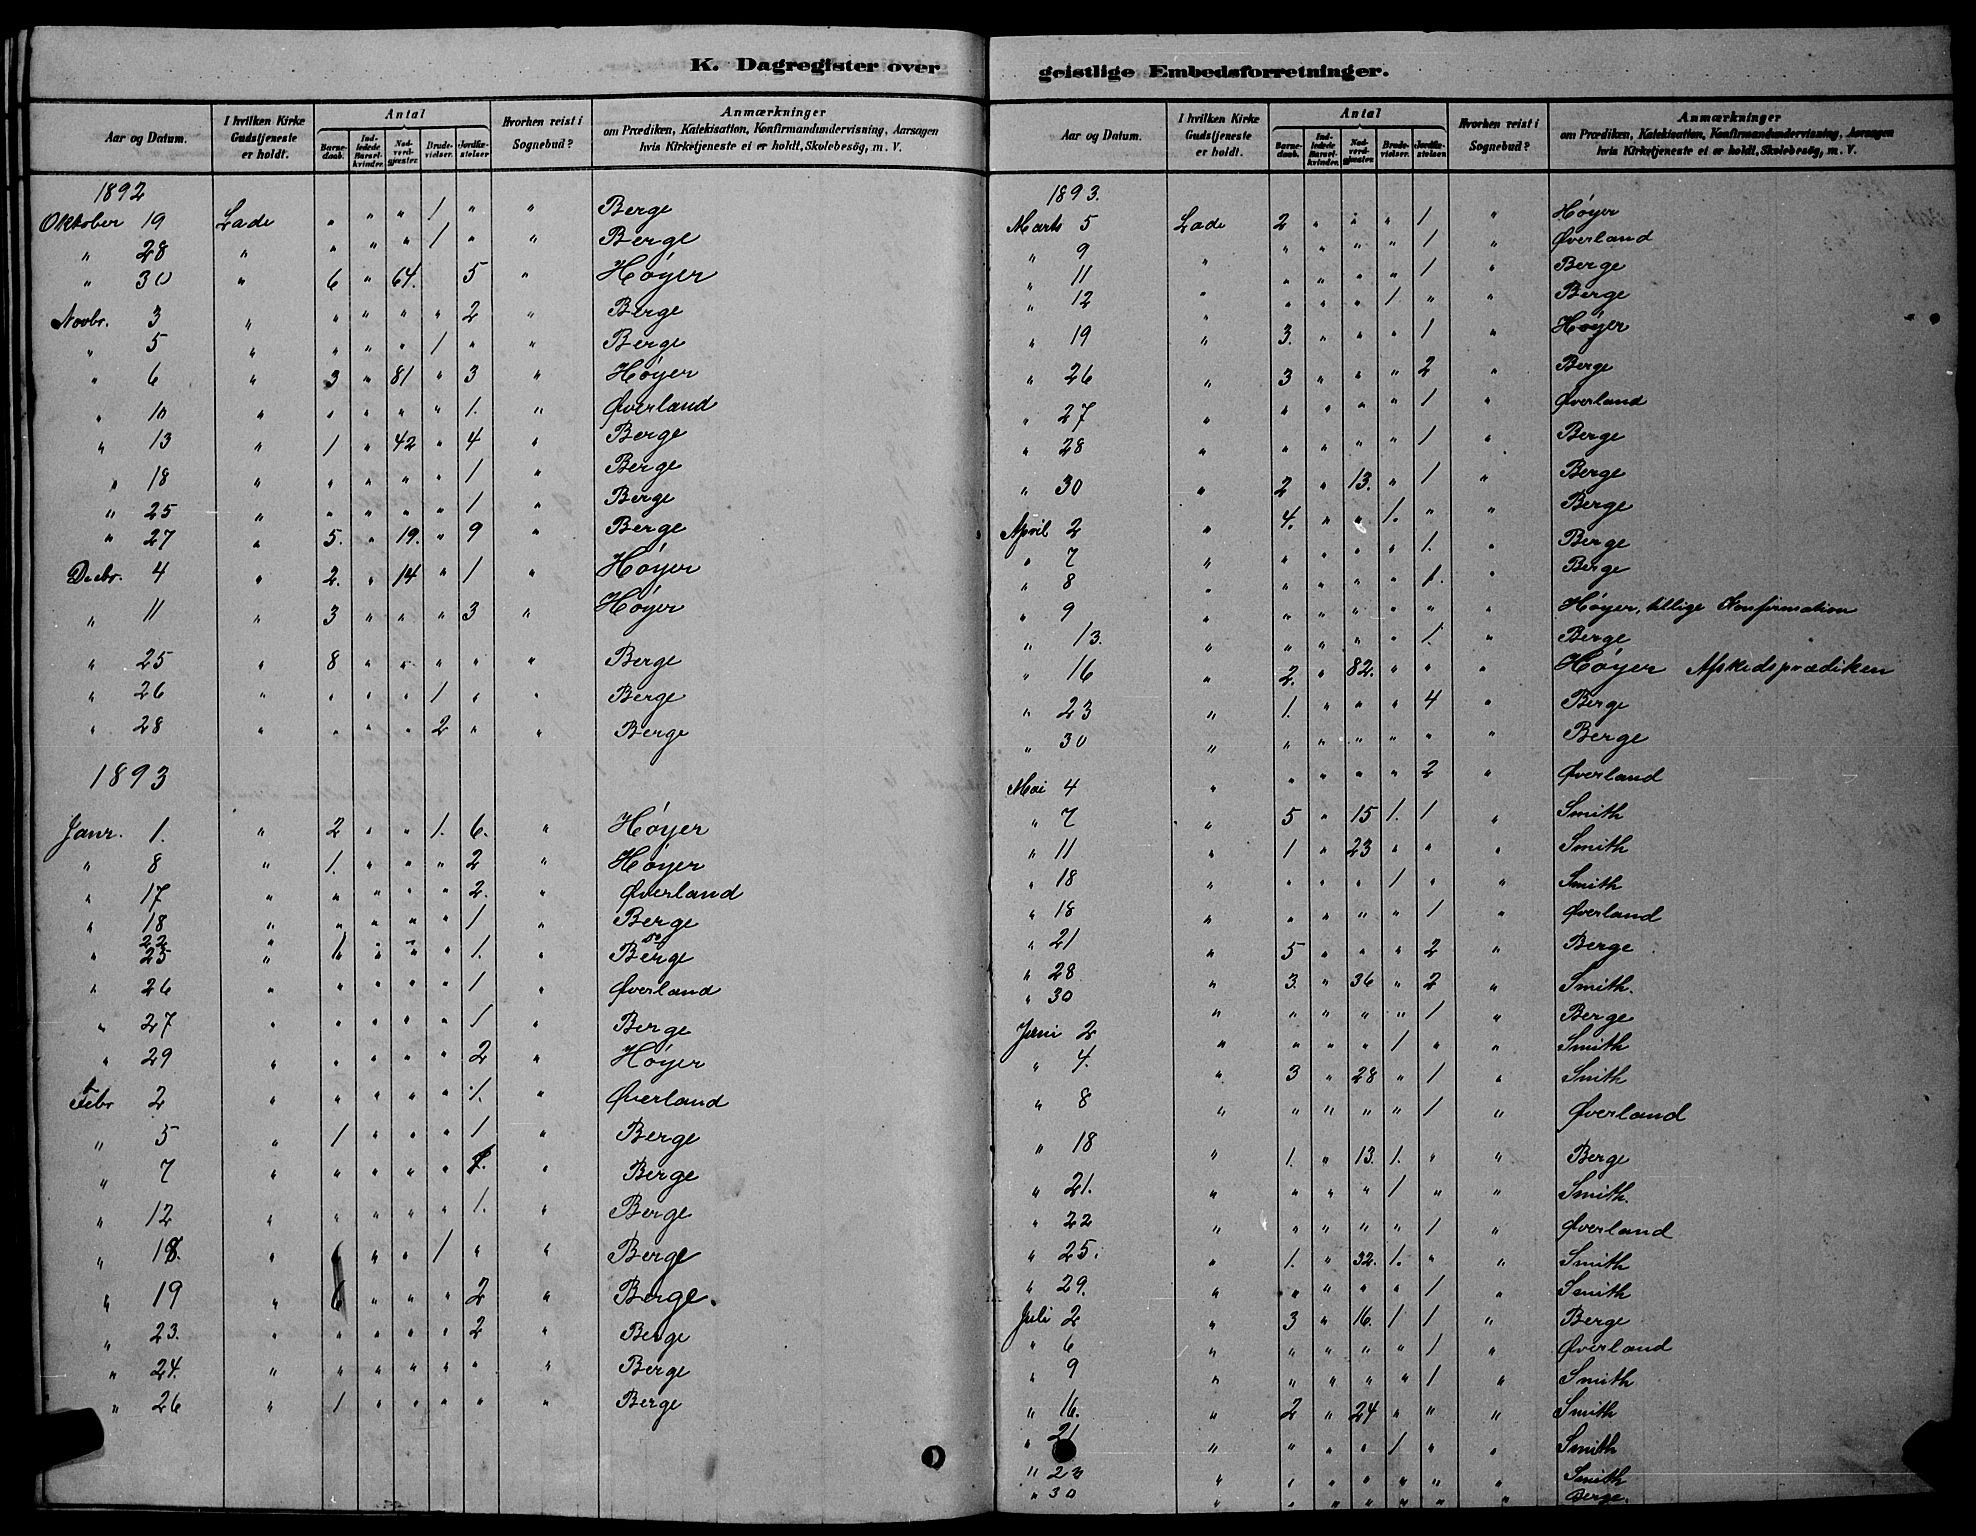 K. Dagregister over geistlige Embedsforretninger.
Aar og Datum. | I hvilken Kirke Gudstjeneste er holdt. | Antal | Barnedaab. | Indledede Barselkvinder. | Nadverdgjester. | Brudevielser. | Jordfæstelser | Hvorhen reist i Sognebud? | Anmærkninger om Prædiken, Katekisation, Konfirmandundervisning, Aarsagen hvis Kirketjeneste ei er holdt, Skolebesøg, m. V.
1892
Oktober 19 Lade " " " 1 " " Berge
" 28 " " " " 1 " " Berge
" 30 " 6 " 64. 5 " Høyer
Novbr. 3 " " " " " 2 " Berge
" 5 " " " " 1 " " Berge
" 6 " 3 " 81 " 3 " Høyer
" 10 " " " " " 1. " Øverland
" 13 " 1 " 42 " 4 " Berge
" 18 " " " " " 1 " Berge
" 25 " " " " " 1 " Berge
" 27 " 5. " 19. " 9 " Berge
Decbr. 4 " 2. " 14 " 1 " Høyer
" 11 " 3 " " " 3 " Høyer
" 25 " 8 " " " " " Berge
" 26 " " " " 1 " " Berge
" 28 " " " " 2 " " Berge
1893
Janr. 1. " 2 " " 1. 6. " Høyer
" 8 " 1. " " " 2 " Høyer
" 17 " " " " " 2. " Øverland
" 18 " " " " " 1 " Berge
22 " " "
" 25 " 1 " " " 1. " Berge
" 26 " " " " " 1 " Øverland
" 27 " " " " " 1 " Berge
" 29 " " " " " 2 " Høyer
Febr 2 " " " " " 1. " Øverland
" 5 " 1 " " " 1 " Berge
" 7 " " " " " 1. " Berge
" 12 " " " " " 1. " Berge
" 18. " " " 1 " " Berge
" 19 " 6 " " " 2 " Berge.
" 23. " " " " " 2 " Berge
" 24. " " " " " " " Berge
" 26 " 1 " " " " " Berge
Aar og Datum. | I hvilken Kirke Gudstjeneste er holdt. | Antal | Barnedaab. | Indledede Barselkvinder. | Nadverdgjester. | Brudevielser. | Jordfæstelser | Hvorhen reist i Sognebud? | Anmærkninger om Prædiken, Katekisation, Konfirmandundervisning, Aarsagen hvis Kirketjeneste ei er holdt, Skolebesøg, m. V.
1893.
Marts 5 Lade 2 " " " 1 " Høyer
" 9 " " " " " 1 " Øverland
" 11 " " " " 1 " Berge
" 12 " " " " 1. " " Berge
" 19 " 3. " " " 1 " Høyer
" 26 " 3 " " " 2 " Berge
" 27 " " " " " 1 " Øverland
" 28 " " " " " 1 " Berge
" 30 " 2 " 13. " 1 " Berge
April 2 " 4. " " 1. " " Berge
" 7 " " " " " 1. " Berge
" 8 " " " " " 1. " Berge
" 9 " " " " " " " Høyer, tillige Konfirmation
" 13. " " " " " 1. " Berge
" 16 " 2. " 82. " " " Høyer Afskedsprædiken
" 23 " 1. " " " 4 " Berge
" 30 " " " " " " " Berge
Mai 4 " " " " " 2 " Øverland
" 7 " 5 " 15 1. 1 " Smith
" 11 " 1 " 23 " " " Smith
" 18 " " " " 1 " " Smith
" 18 " " " " " 1 " Øverland
" 21 " 5 " " " 2 " Berge
" 28 " 3. " 36 " 2 " Smith.
" 30 " " " " " 1 " Berge
Juni 2 " " " " 1 " " Smith
" 4. " 3 " 28 " 1 " Smith
" 8 " " " " " 1 " Øverland
" 18 " 1. " 13. 1. " " Berge
" 21. " " " " 1 " " Smith.
" 22 " " " " " 1 " Øverland
" 25. " 1. " 32. 1. " " Smith
" 29. " " " " " 1 " Smith
Juli 2 " 3 " 16. 1 1 " Berge
" 6 " " " " " 1 " Øverland
" 9 " " " " " 1 " Smith
" 16. " 2 " 24 " " " Smith
" 21 " " " " 1 " " Smith
" 23 " " " " " " " Smith
" 30 " " " " " " " Berge.